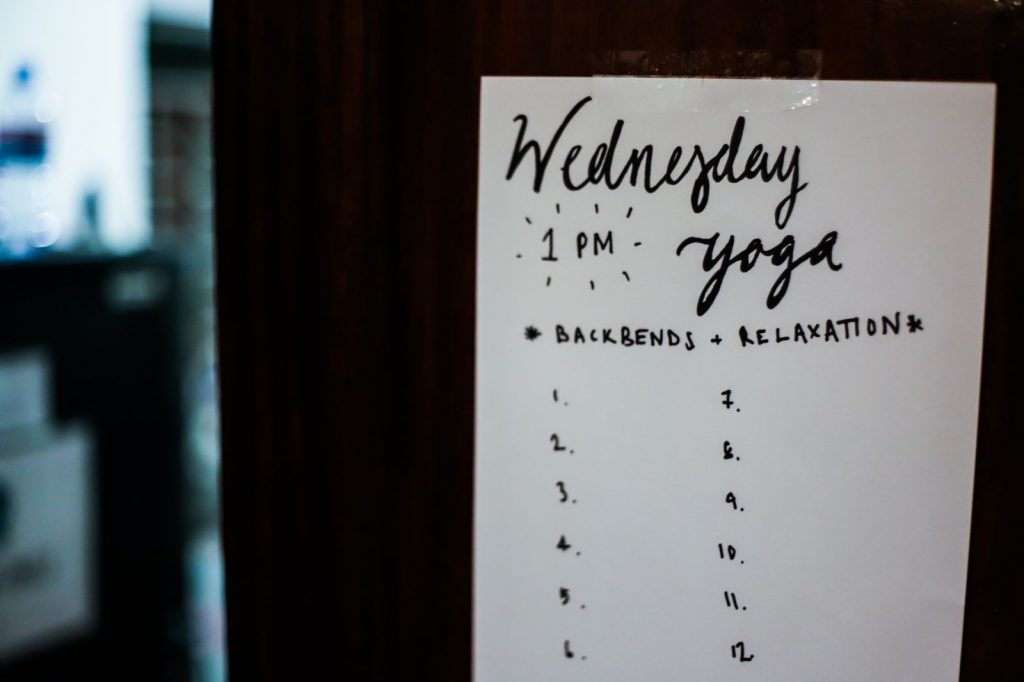 Wednesday
1 PM yoga
* BACKBENDS + RELAXATION *
1. 7.
2. 8.
3. 9.
4. 10.
5. 11.
6. 12.